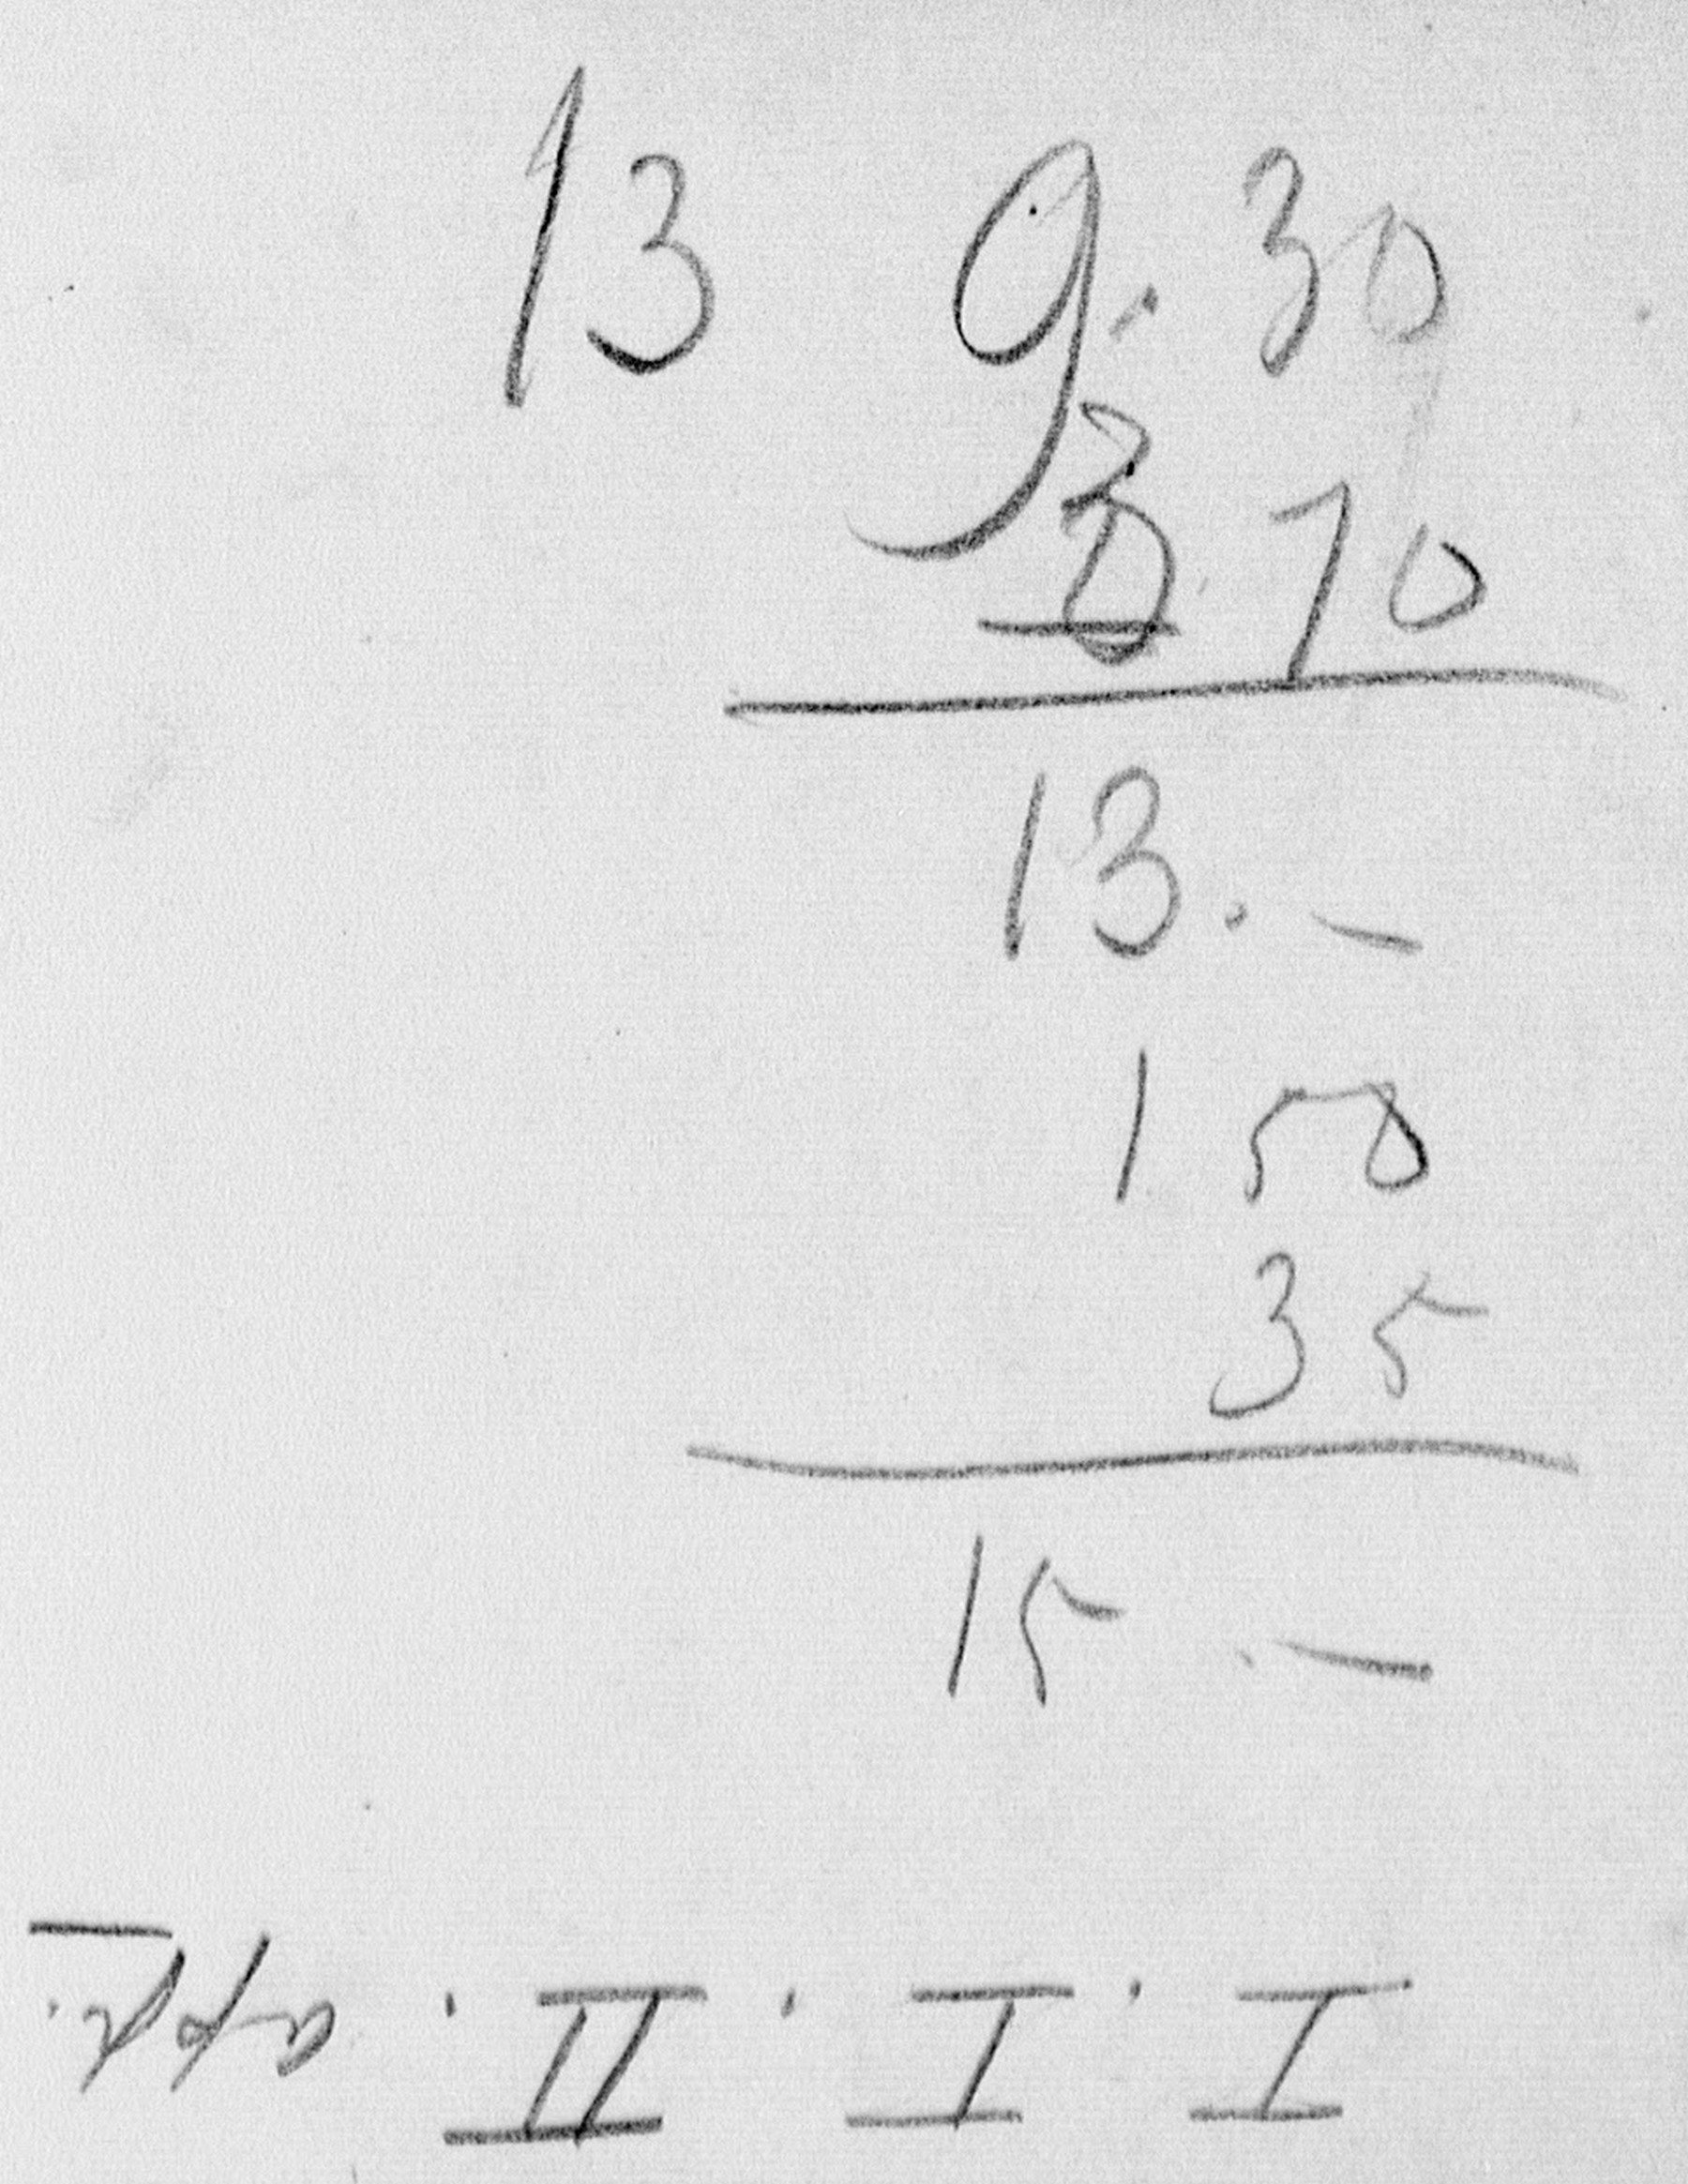 13 9.30
3 70
13.—
1 50
35
15.—
I. I. II.